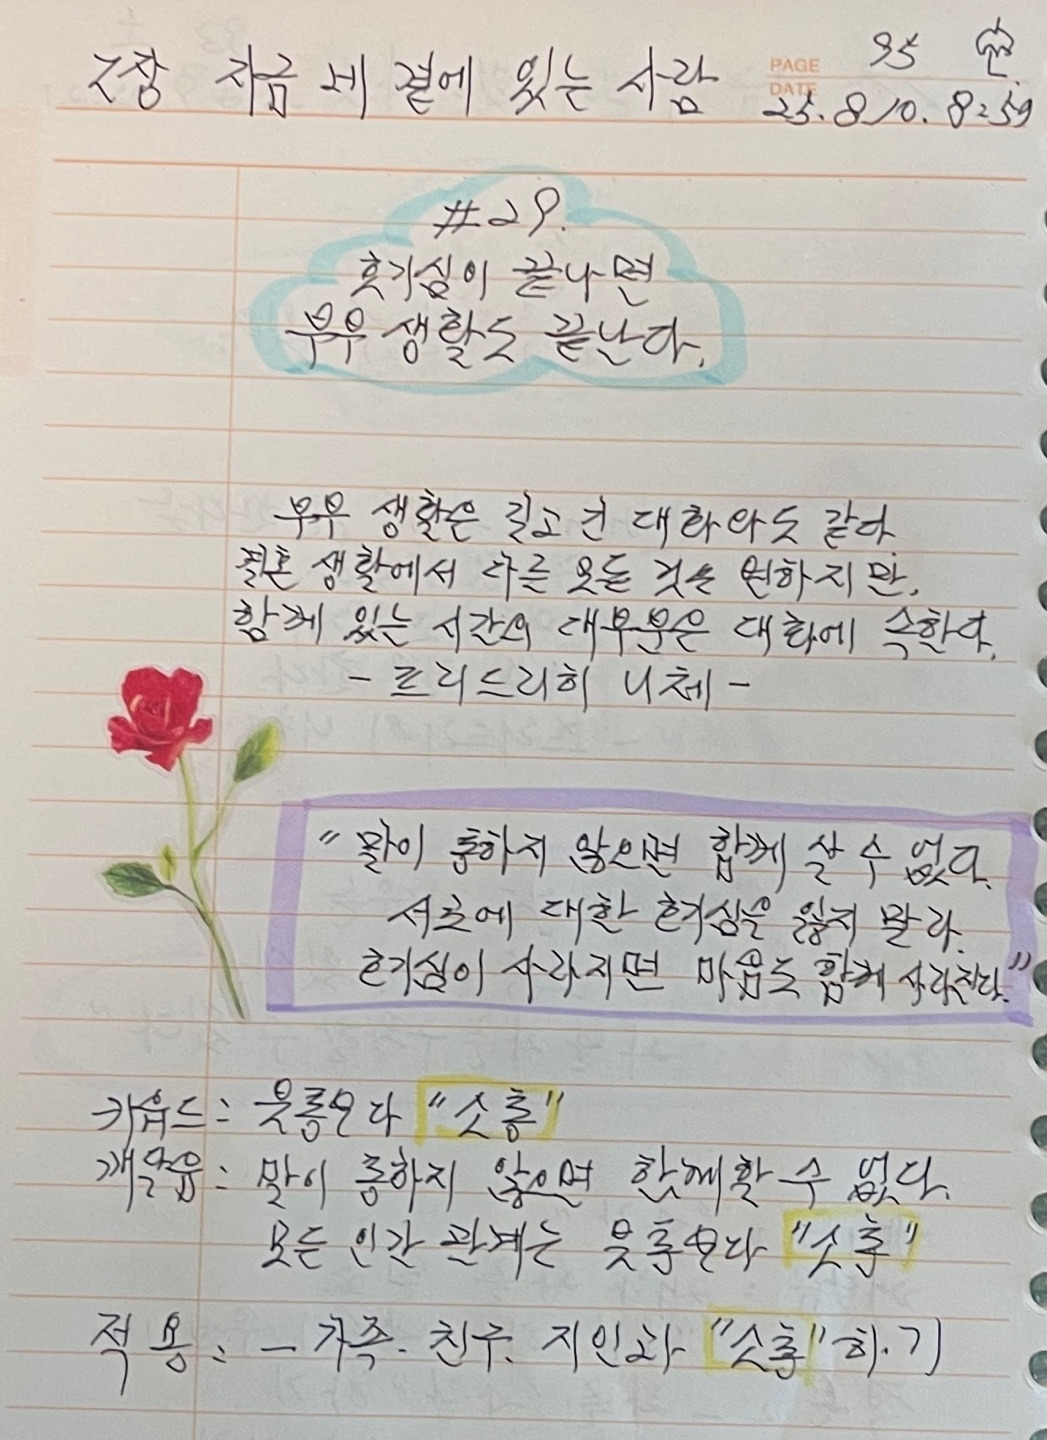 2장 지금 네 곁에 있는 사람
PAGE 95
DATE 25.8.10. 8:59
#29.
호기심이 끝나면
부부 생활도 끝난다.
부부 생활은 길고 긴 대화와도 같다.
결혼 생활에서 다른 모든 것은 변하지만,
함께 있는 시간의 대부분은 대화에 속한다.
- 프리드리히 니체 -
"말이 통하지 않으면 함께 살 수 없다.
서로에 대한 호기심을 잃지 말라.
호기심이 사라지면 마음도 함께 사라진다."
키워드 : 무엇보다 "소통"
깨달음 : 말이 통하지 않으면 함께할 수 없다.
모든 인간 관계는 무엇보다 "소통"
적용 : - 가족. 친구. 지인과 "소통"하기